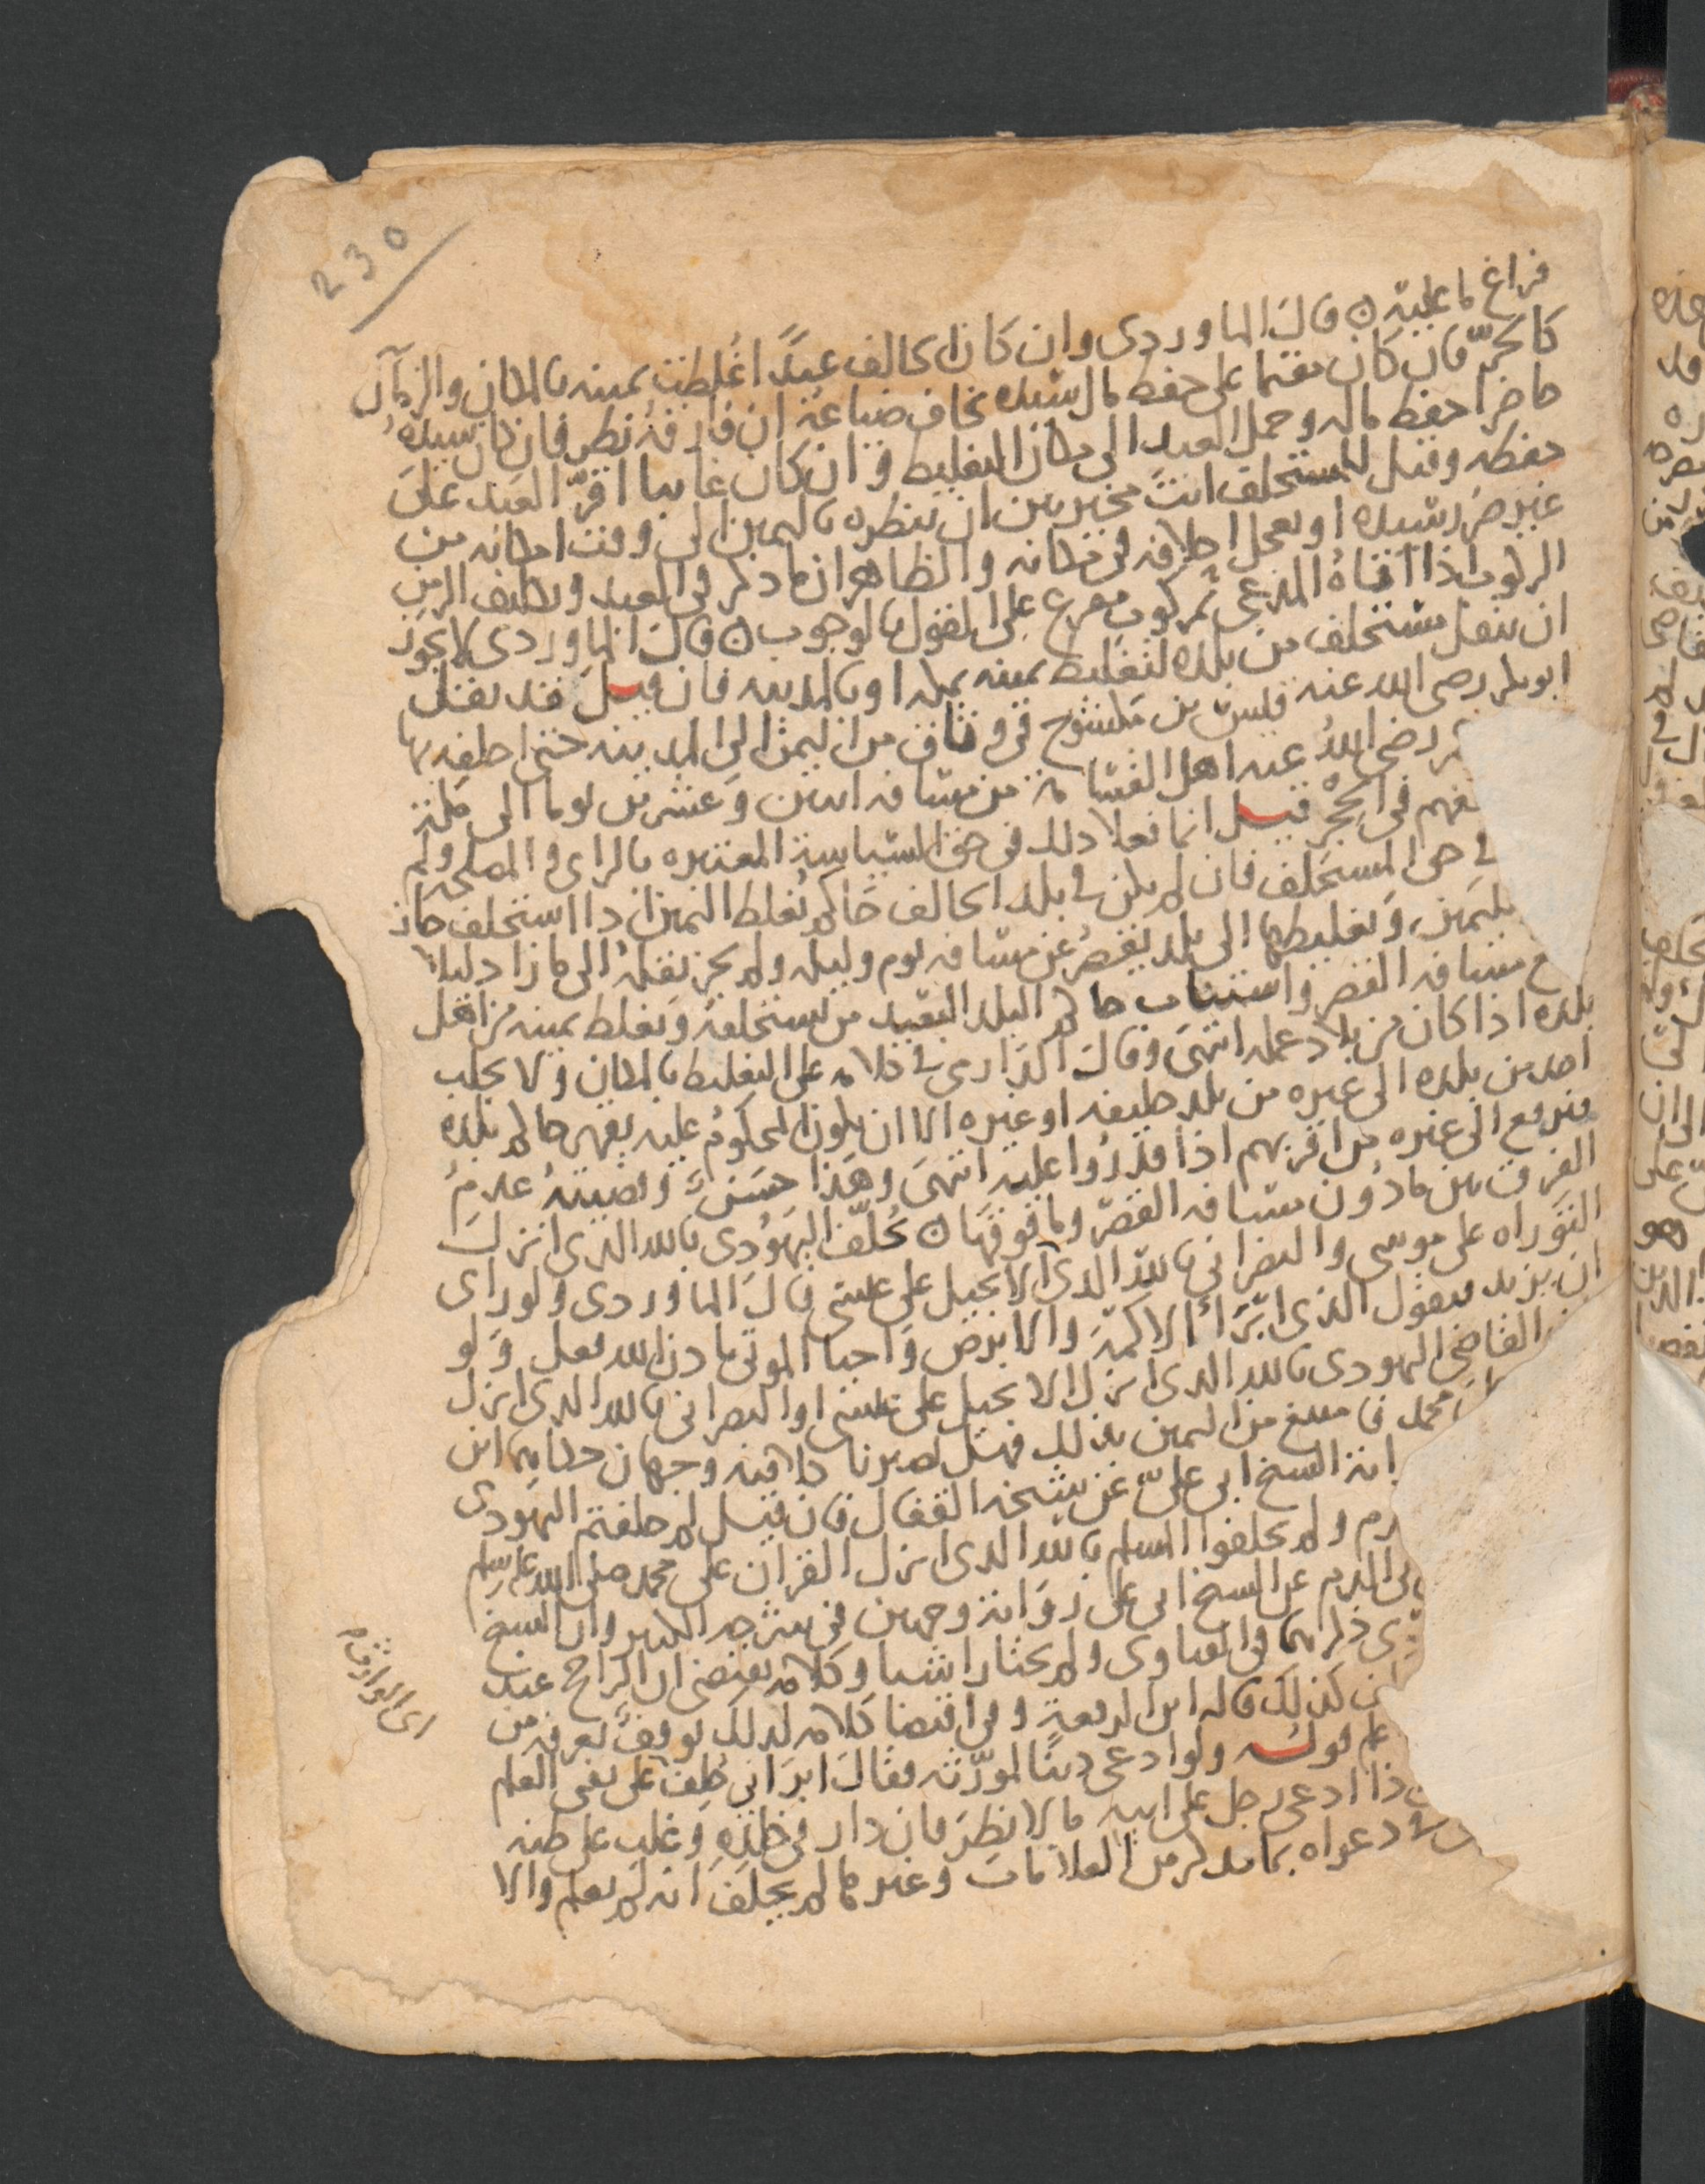 230
فراغ ما عليه ن قال الماوردي وان كان الحالف عبدا اغلظت يمينه بالمكان والزمان
كالحر فان كان مقيما على حفظ مال سيده يخاف ضياعه ان فارقه نظر فان كان سيده
حاضرا حفظ ماله وحمل العبد الى مكان التغليظ وان كان غايبا اقر العبد على
حفظه وقيل للمستحلف انت مخير بين ان تنظره باليمين الى وقت امكانه من
غير ضرر سيده او تعجل احلافه في مكانه والظاهر ان ما ذكر في العبد
الركوب اذا اتاه المدعي بمركوب مفرع على القول بالوجوب ن قال الماوردي لا يجوز
ان ينقل مستحلف من بلده لتغليظ يمينه بمكة او بالمدينة فان قيل فقد نقل
ابو بكر رضي الله عنه قيس بن مكشوح في وثاق من اليمن الى المدينة حتى احلفه بها
رضي الله عنه اهل القسامة من مسافة اثنين وعشرين يوما الى مكة
في الحجر قيل انما فعلا ذلك في حق السياسة المعتبرة بالراي والمصلحة ولم
في حق المستحلف فان لم يكن في بلد الحالف حاكم تغلظ اليمين اذا استحلف جاز
وتغليظها الى بلد يقصر عن مسافة يوم وليلة ولم يجز نقله الى ما زاد
مسافة القصر واستناب حاكم البلد البعيد من يستحلفه ويغلظ يمينه من اهل
بلده اذا كان من بلاد عمله انتهى وقال الدارمي في كلامه على التغليظ بالمكان ولا يجلب
احد من بلده الى غيره من بلد خليفة او غيره الا ان يكون المحكوم عليه يقهر حاكم بلده
فيرفع الى غيره من اقربهم اذا قدروا عليه انتهى وهذا حسن وقضيته عدم
الفرق بين ما دون مسافة القصر وما فوقها ن يحلف اليهودي بالله الذي انزل
التوراه على موسى والنصراني بالله الذي الانجيل على عيسى قال الماوردي ولو راى
ان يزيد فيقول الذي ابرأ الاكمه والابرص واحيا الموتى باذن الله فعل ولو
القاضي اليهودي بالله الذي انزل الانجيل على عيسى او النصراني بالله الذي انزل
محمد فامتنع من اليمين بذلك فهل وجهان حكاهما ابن
الشيخ ابي علي عن شيخه القفال فان قيل لم حلفتم اليهودي
ولم تحلفوا المسلم بالله الذي انزل القران على محمد صلى الله عليه وسلم
الدم عن الشيخ ابي علي رواية وجهين في شرحه الكبير وان الشيخ
ذكرهما في الفتاوى ولم يختارا شيا وكلامه يقتضي ان الراجح عند
كذلك قاله ابن الرفعة وفي اقتضا كلامه لذلك توقف يعرف من
قوله ولو ادعى دينا لمورثه فقال ابراني حلف على نفي العلم
ادعى رجل على ابيه مالا نظر فان دار في خلده وغلب على ظنه
دعواه بما يذكر من العلامات وغيرها لم يحلف انه لم يعلم والا
اي الوارث